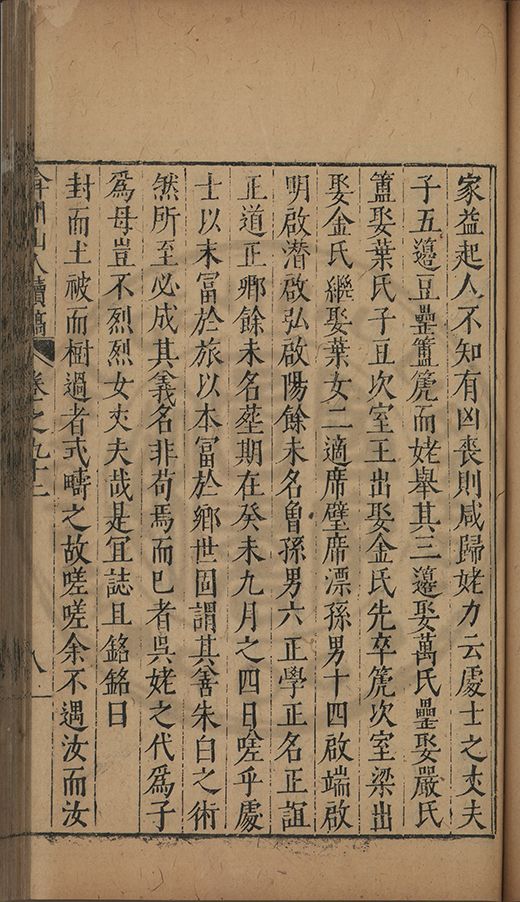 家益起人不知有凶喪則咸歸姥力云處士之丈夫
子五籩豆罍簠篪而姥舉其三籩娶萬氏罍娶嚴氏
簠娶葉氏子豆次室王出娶金氏先卒篪次室梁出
娶金氏繼娶葉女二適席璧席漂孫男十四啟端啟
明啟潜啟弘啟陽餘未名曾孫男六正學正名正誼
正道正鄉餘未名塟期在癸未九月之四日嗟乎處
士以末富於旅以本富於鄉世固謂其善朱白之術
然所至必成其義名非苟焉而已者吳姥之代為子
為母豈不烈烈女丈夫哉是宜誌且銘銘曰
封而土被而樹過者式疇之故嗟嗟余不遇汝而汝
弇州山人續稿 卷之九十二 八